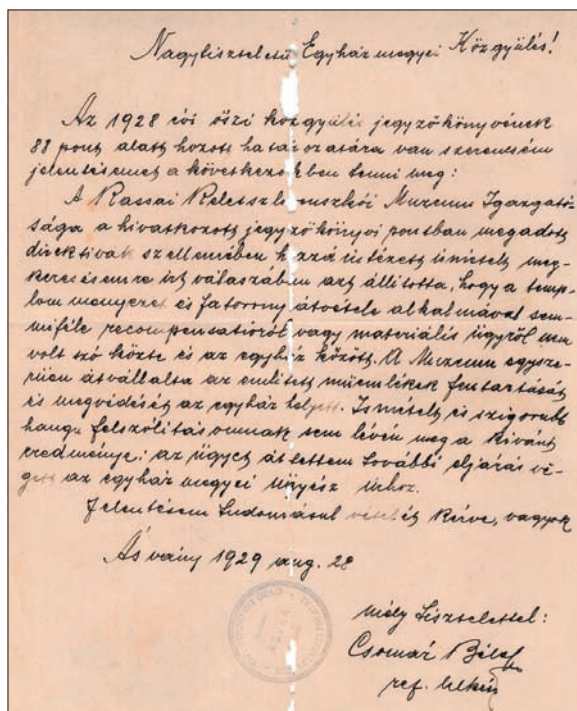 Nagytiszteletü Egyházmegyei Közgyülés!
Az 1928 évi őszi közgyülés jegyzőkönyvének
88 pont alatt hozott határozatára van szerencsém
jelentésemet a következőkben tenni meg:
A Kassai Keletszlovenszkói Muzeum Igazgató-
sága a hivatkozott jegyzőkönyvi pontban megadott
direktivák szellemében hozzá intézett ismételt meg-
keresésemre irt válaszában azt állitotta, hogy a temp-
lom menyezet és fatorony átvétele alkalmával sem-
miféle recompensatióról vagy materiális ügyről nem
volt szó közte és az egyház között. A Muzeum egysze-
rüen átvállalta az emlitett müemlékek fentartását
és megvédését az egyház helyett. Ismételt és szigorubb
hangu felszólitásomnak sem lévén meg a kivánt
eredménye: az ügyet áttettem további eljárás vé-
gett az egyházmegyei ügyész úrhoz.
Jelentésem tudomásul vételét kérve, vagyok
Ásvány 1929 aug. 28
mély tisztelettel:
Csomár Béla
ref. lelkész